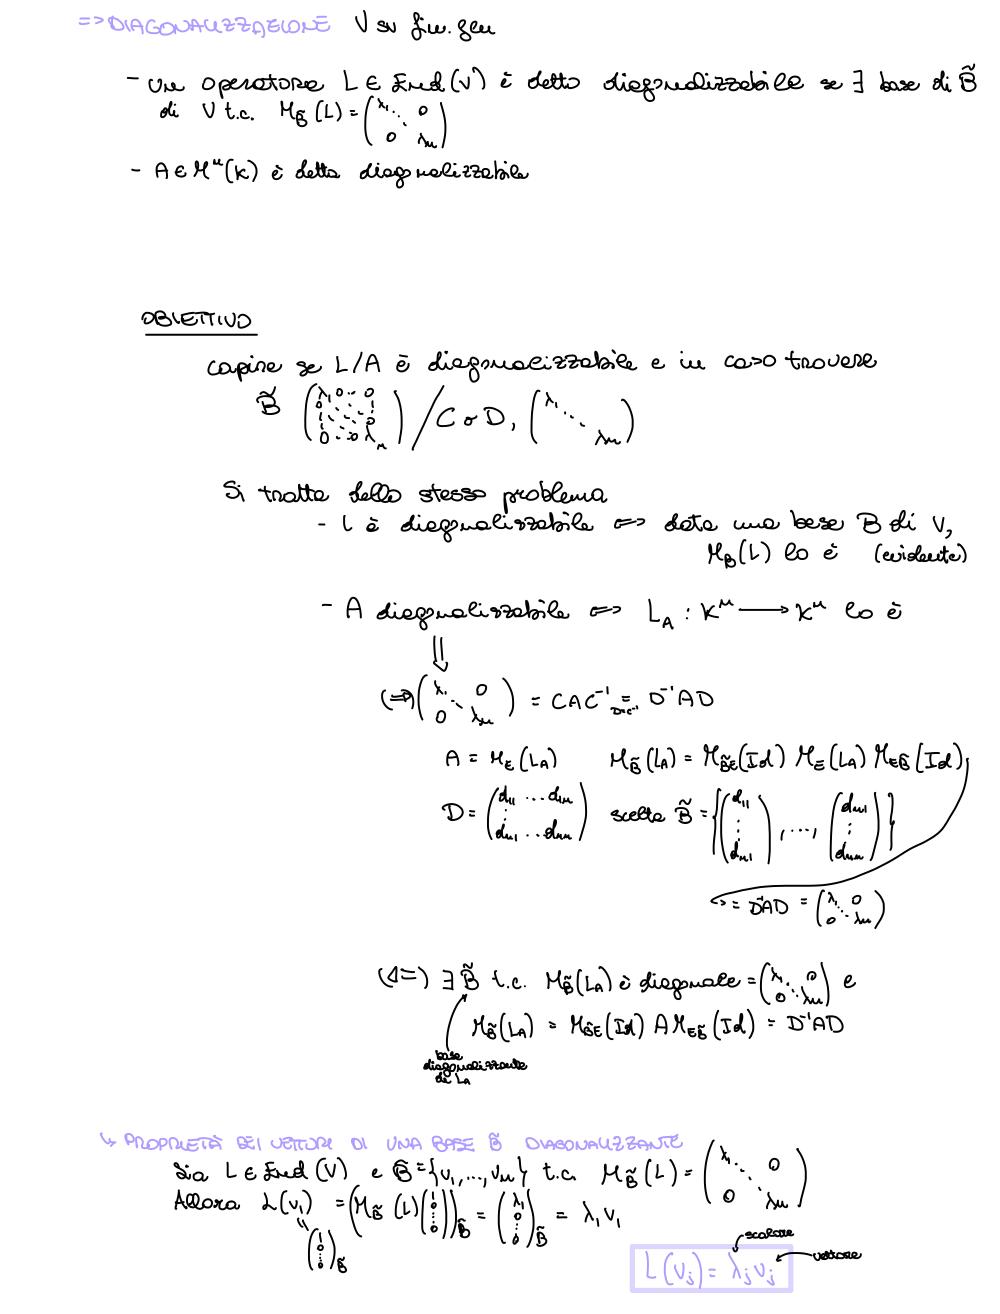 => DIAGONALIZZAZIONE V sv fin. gen
- un operatore L ∈ End(V) è detto diagonalizzabile se ∃ base di B̃
di V t.c. M_B̃(L) = (λ₁ ⋱ 0 0 λₙ)
- A ∈ Mⁿ(K) è detta diagonalizzabile
OBIETTIVO
capire se L/A è diagonalizzabile e in caso trovare
B̃ (λ₁ 0 ‐ ‐ 0 0 ⋱ 0 0 ‐ ‐ 0 λₙ) / C o D, (λ₁ ⋱ λₙ)
Si tratta dello stesso problema
- L è diagonalizzabile <=> data una base B di V,
M_B(L) lo è (evidente)
- A diagonalizzabile <=> L_A : Kⁿ ⟶ Kⁿ lo è
⇓
(=>) (λ₁ ⋱ 0 0 λₙ) = CAC⁻¹ =_{D=C⁻¹} D⁻¹AD
A = M_E(L_A) M_B̃(L_A) = M_B̃E(Id) M_E(L_A) M_EB̃(Id)
D = (d₁₁ ... d₁ₙ ⋮ dₙ₁ ... dₙₙ) scelta B̃ = {(d₁₁ ⋮ dₙ₁), ..., (dₙ₁ ⋮ dₙₙ)}
↪ = D⁻¹AD = (λ₁ 0 ⋱ 0 λₙ)
(<=) ∃ B̃ t.c. M_B̃(L_A) è diagonale = (λ₁ ⋱ 0 0 λₙ) e
M_B̃(L_A) = M_B̃E(Id) A M_EB̃(Id) = D⁻¹AD
base
diagonalizzante
di L_A
↳ PROPRIETÀ DEI VETTORI DI UNA BASE B̃ DIAGONALIZZANTE
Sia L ∈ End(V) e B̃ = {v₁, ..., vₙ} t.c. M_B̃(L) = (λ₁ ⋱ 0 0 λₙ)
Allora L(v₁) = (M_B̃(L)(1 0 ⋮ 0))_B̃ = (λ₁ 0 ⋮ 0)_B̃ = λ₁v₁
(1 0 ⋮ 0)_B̃
scalare
vettore
L(vⱼ) = λⱼvⱼ